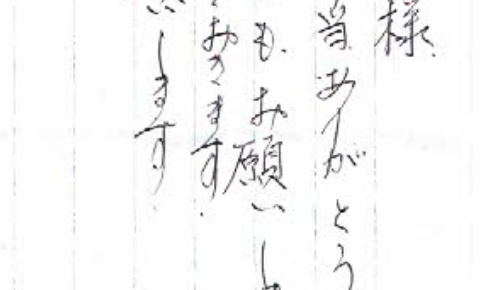 様
当ありがとう
もお願いし
おきます
いします